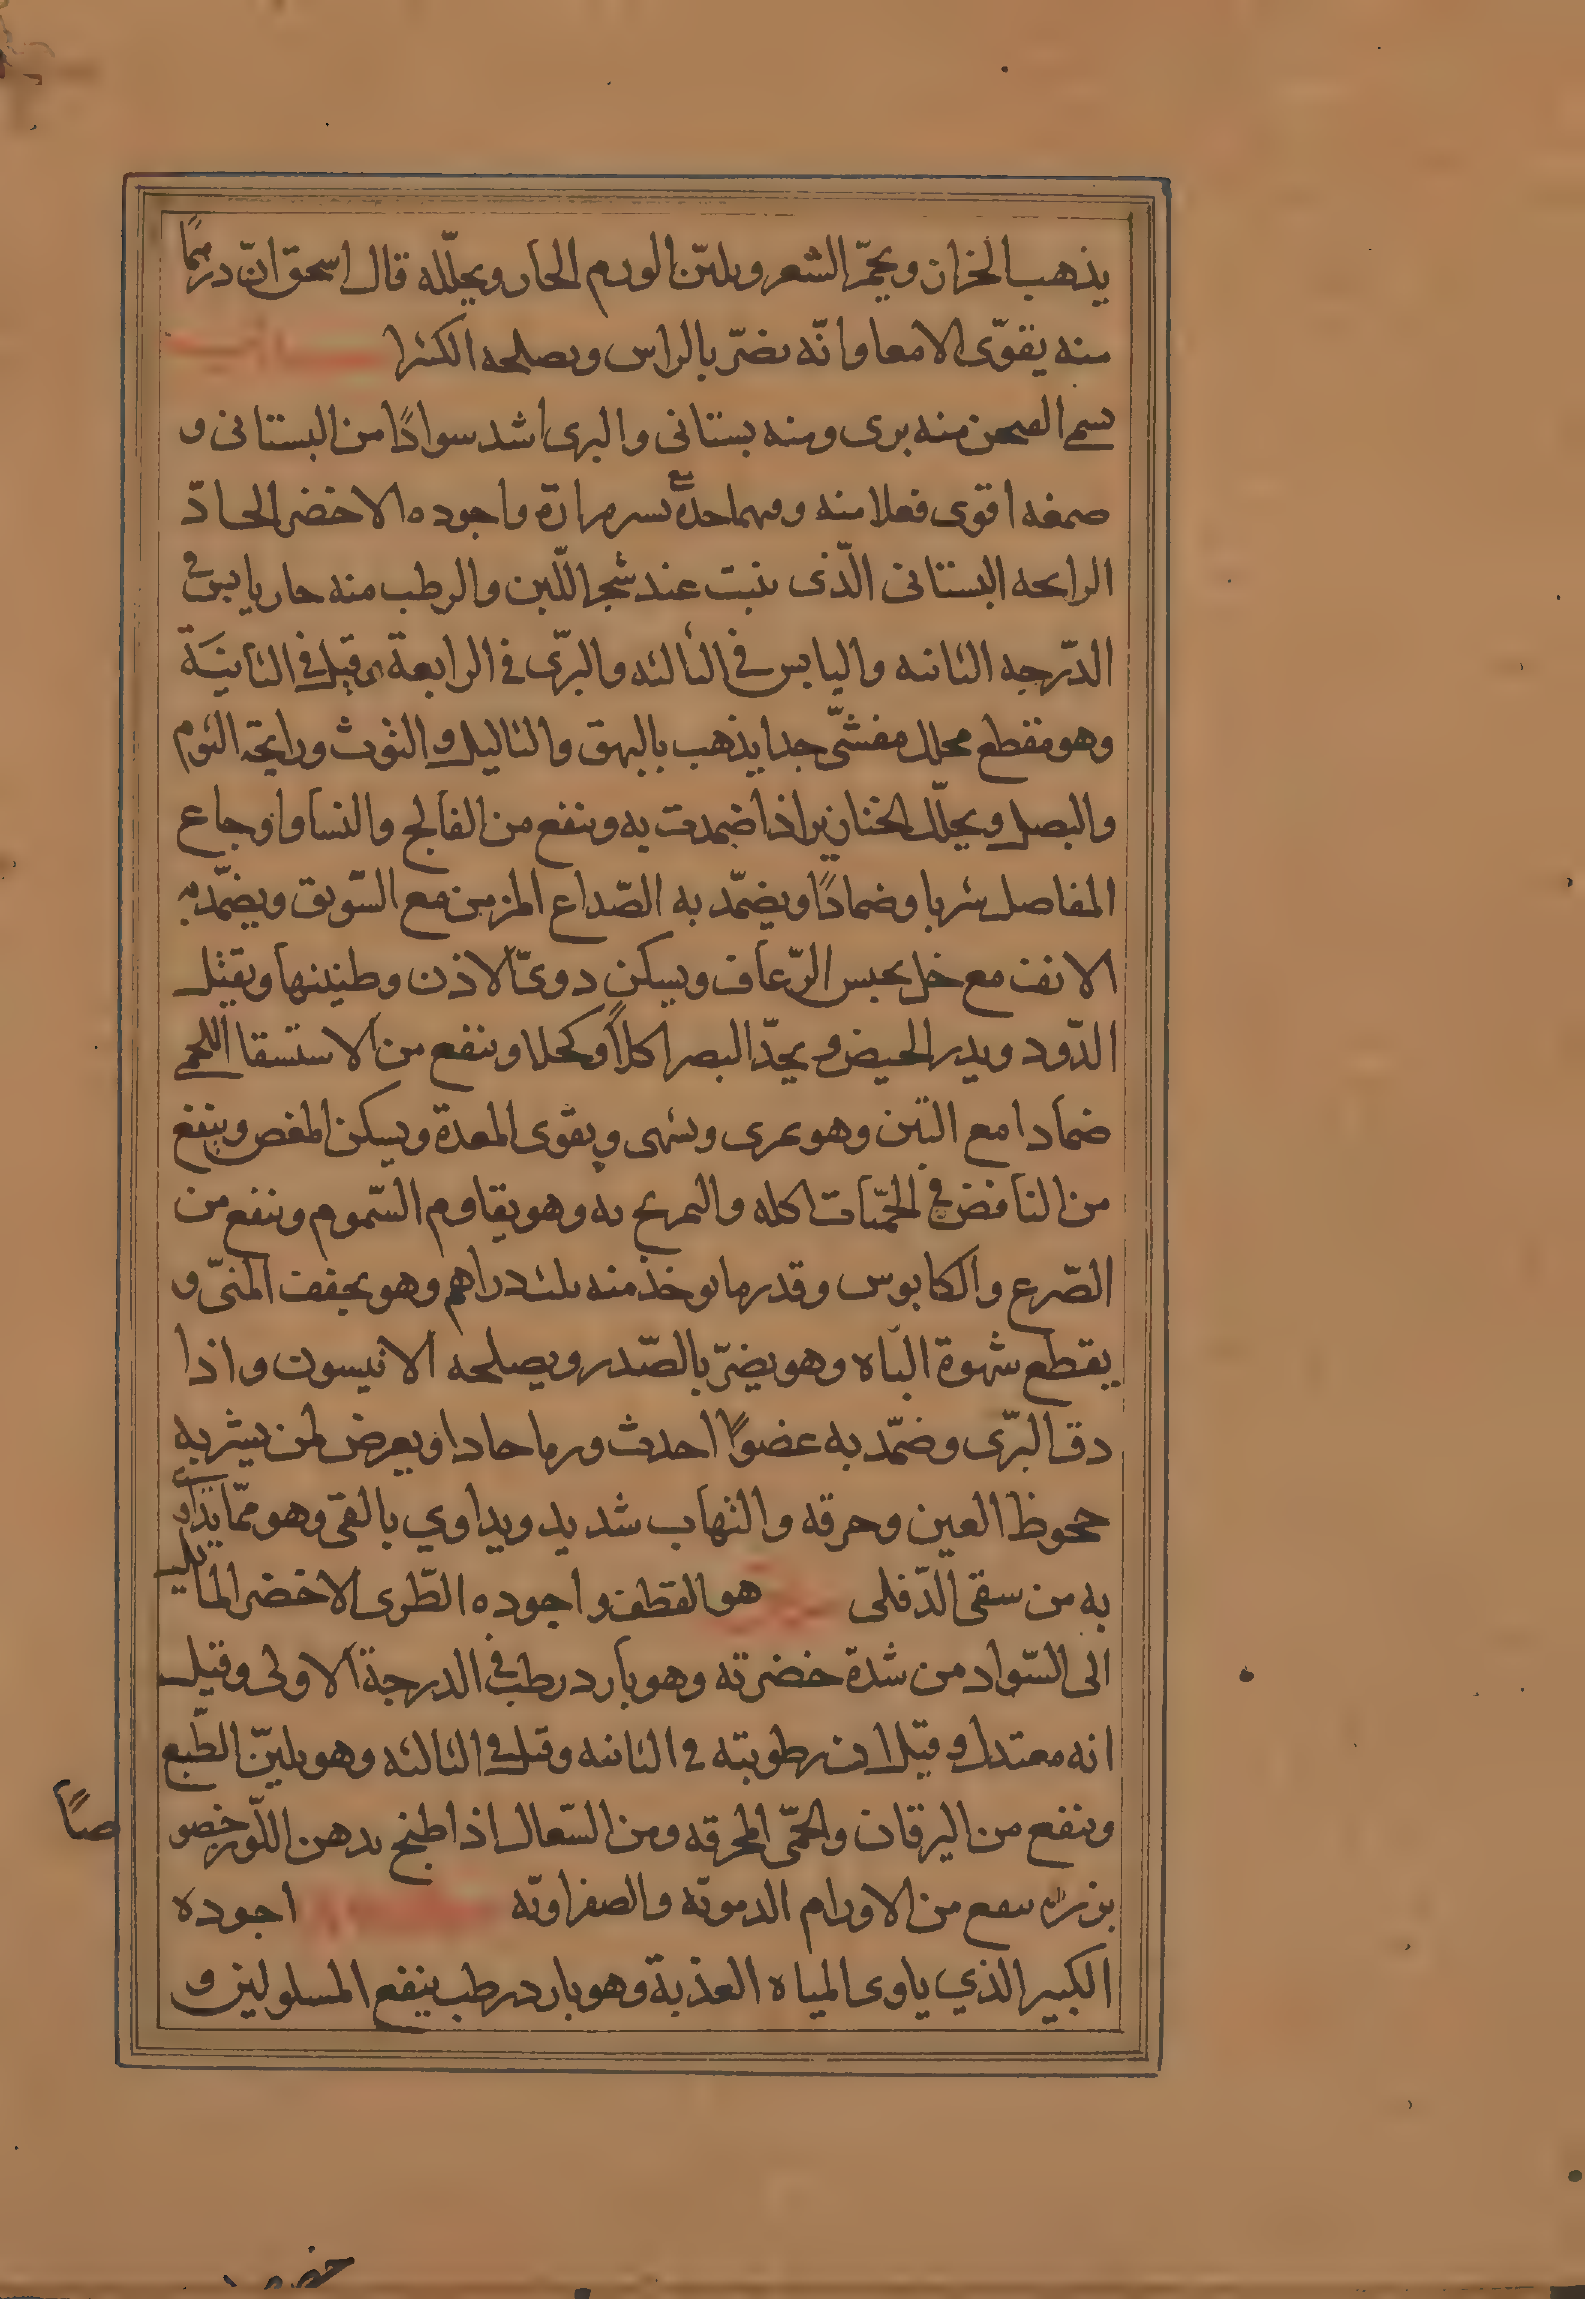 يذهب الخزاز ويحمّر الشعر ويليّن الورم الحار ويحلّله قال اسحق انّ درهمًا
منه يقوّى الامعا وانّه يضرّ بالراس ويصلحه الكثرا
يسمى منه برى ومنه بستانى والبرى اشد سوادًا من البستانى و
صمغه اقوى فعلا منه وفيهما حدة يسير مرارة واجوده الاخضر الحادّ
الرايحه البستانى الّذى ينبت عند شجر التّين والرطب منه حار يابس فى
الدّرجه الثانيه واليابس فى الثالثه والبرّى فى الرابعة وقيل فى الثانيَة
وهو مقطع محلل مفشّى جدا يذهب بالبهق والثاليل والتوث ورايحة الثوم
والبصل ويحلّل الخنازير اذا ضمدت به وينفع من الفالج والنسا واوجاع
المفاصل شربا وضمادًا ويضمّد به الصّداع المزمن مع السّويق ويضمّد به
الانف مع خل يحبس الرّعاف ويسكن دوىّ الاذن وطنينها ويقتل
الدّود ويدر الحيض ويحدّ البصر اكلاً وكحلا وينفع من الاستسقا اللحمى
ضمادا مع التين وهو يمرى ويشهى ويقوى المعدة ويسكن المغص وينفع
من النافض فى الحمّيات اكله والتمريخ به وهو يقاوم السّموم وينفع من
الصّرع والكابوس وقدر ما يوخذ منه ثلث دراهم وهو يجفف المنىّ و
يقطع شهوة الباه وهو يضرّ بالصّدر ويصلحه الانيسون واذا
دق البرّى وضمّد به عضوًا احدث ورما حادا ويعرض لمن يشربه
جحوظ العين وحرقه والتهاب شديد ويداوي بالقى وهو ممّا يتداوى
به من سقى الدّفلى هو القطف واجوده الطّرى الاخضر المايل
الى السّواد من شدة خضرته وهو بارد رطب فى الدرجة الاولى وقيل
انه معتدل وقيل ان رطوبته فى الثانيه وقيل فى الثالثه وهو يليّن الطّبع
وينفع من اليرقان والحمّى المحرقه ومن السّعال اذا طبخ بدهن اللّوز خصو
صاً
بزره ينفع من الاورام الدمويّه والصفراويّه اجوده
الكبير الذي ياوى المياه العذبة وهو بارد رطب ينفع المسلولين و